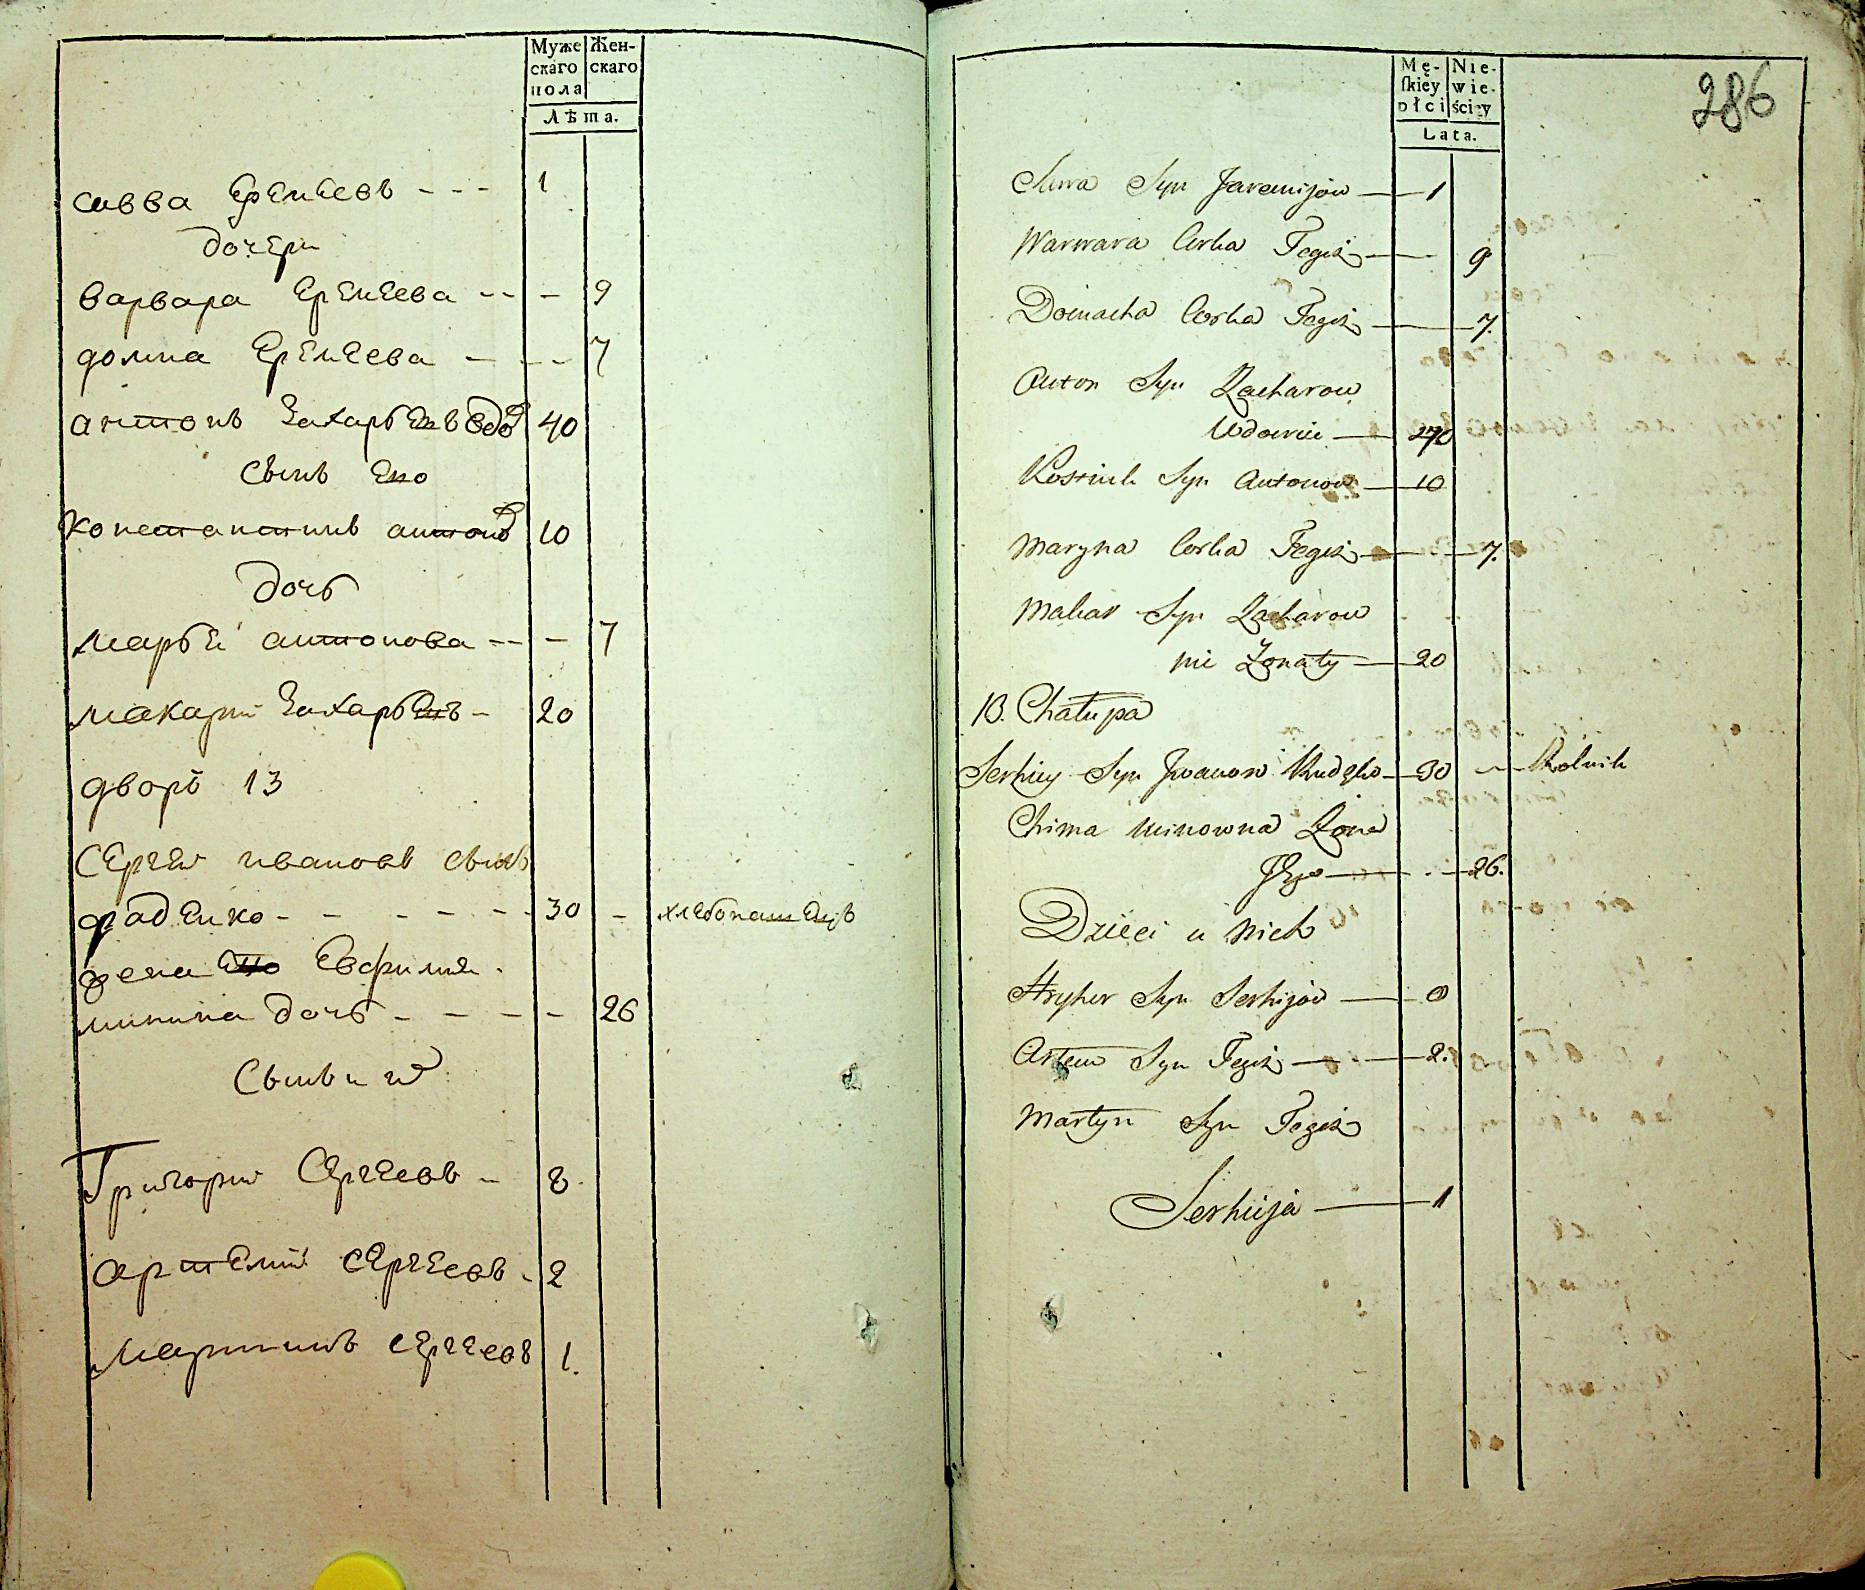 Муже Жен-
скаго скаго
пола
Лѣта.
савва Еремеевъ - - - 1
дочери
варвара Еремеева - - - 9
домна Еремеева - - - 7
антонъ Захарьевъ вдов 40
сынъ Его
Константинъ антонов 10
дочь
марья антонова - - - 7
макарий Захарьевъ - 20
дворъ 13
Сергей ивановъ сынъ
раденко - - - - - - 30 - хлебопашецъ
жена Его Евфимия
минина дочь - - - - 26
Сыны их
Григорий Сергеевъ - 8
артемий Сергеевъ - 2
мартинъ сергеевъ 1.
286
Mę- Nie-
skiey wie-
płci ściey
Lata.
Sawa Syn Jaremijow — 1
Warwara Corka Tegoż — 9
Domacha Corka Tegoż — 7.
Anton Syn Zacharow
Wdowiec — 40
Kostiuk Syn Antonow — 10
Maryna Corka Tegoż — 7.
Makar Syn Zacharow
nie Żonaty — 20
13. Chałupa
Serhiey Syn Iwanow — 30 — Rolnik
Chima Minowna Żona
Jego — 26.
Dzieci u Nich
Hryhor Syn Serhijow — 8
Artem Syn Tegoż — 2.
Martyn Syn Tegoż
Serhieja — 1